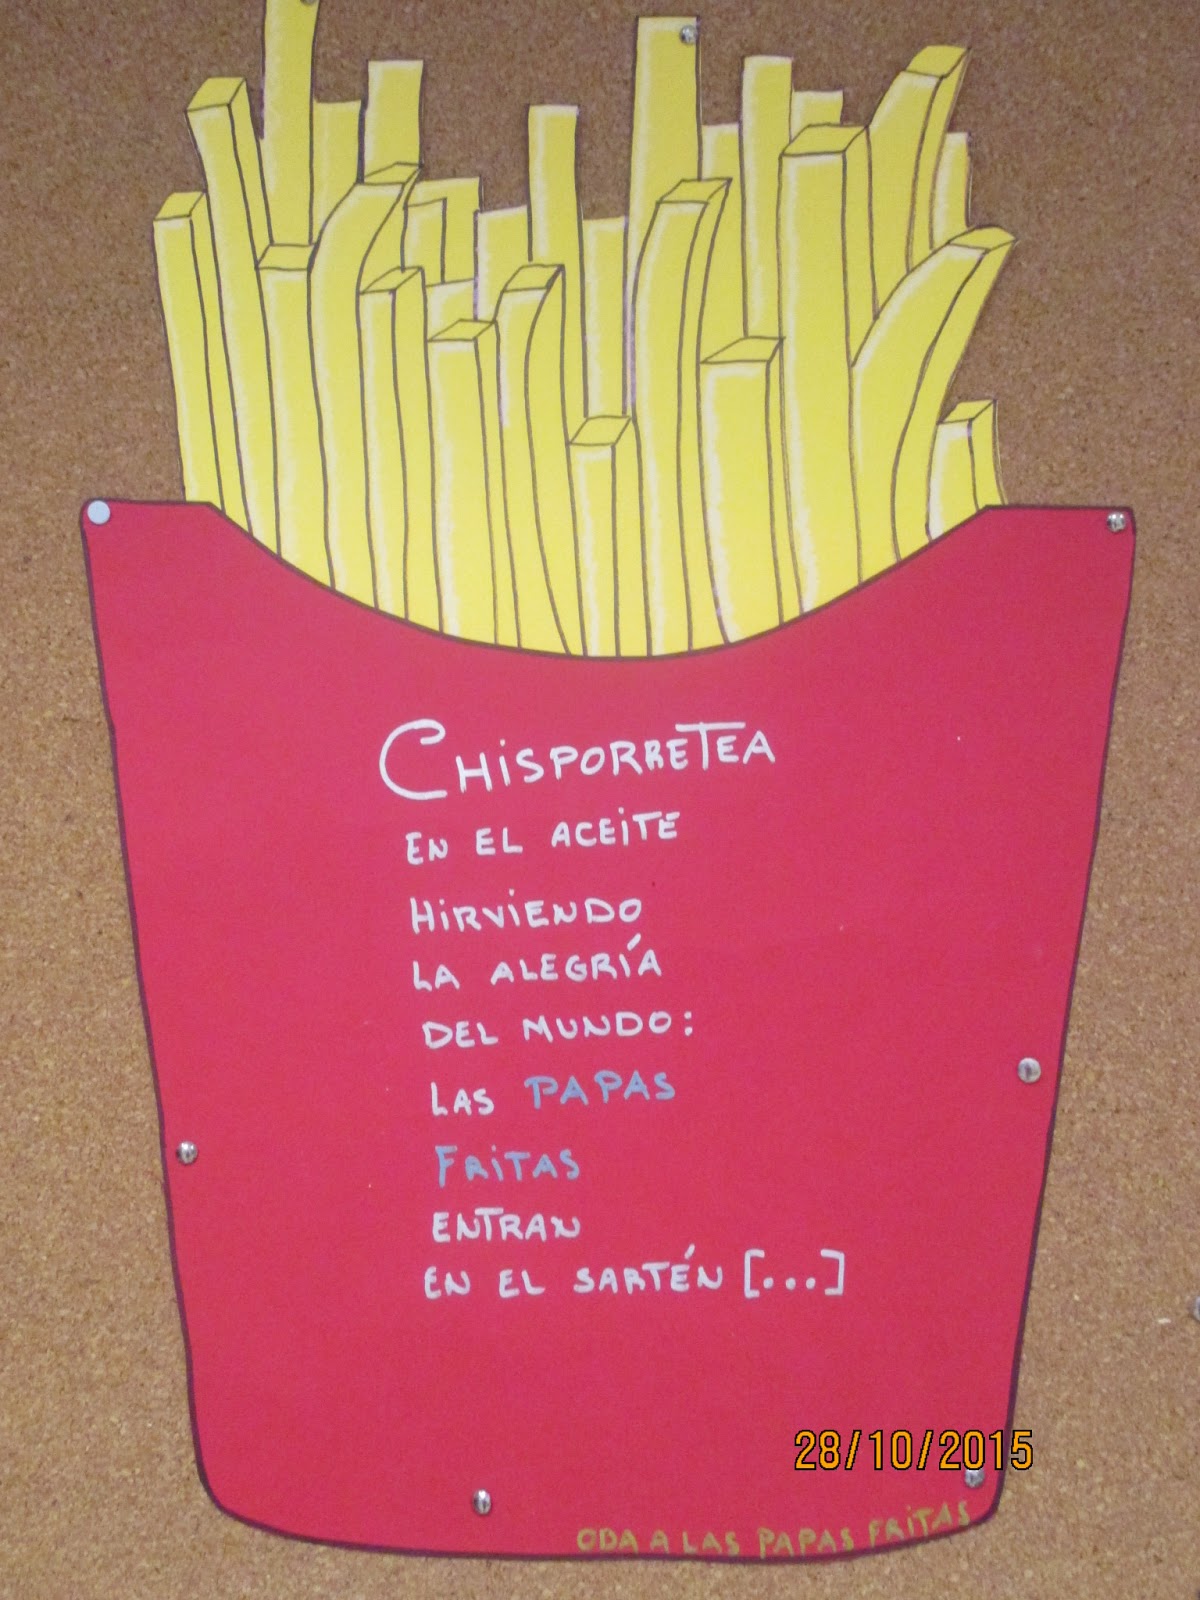 CHISPORRETEA
EN EL ACEITE
HIRVIENDO
LA ALEGRÍA
DEL MUNDO:
LAS PAPAS
FRITAS
ENTRAN
EN EL SARTÉN [...]
28/10/2015
ODA A LAS PAPAS FRITAS